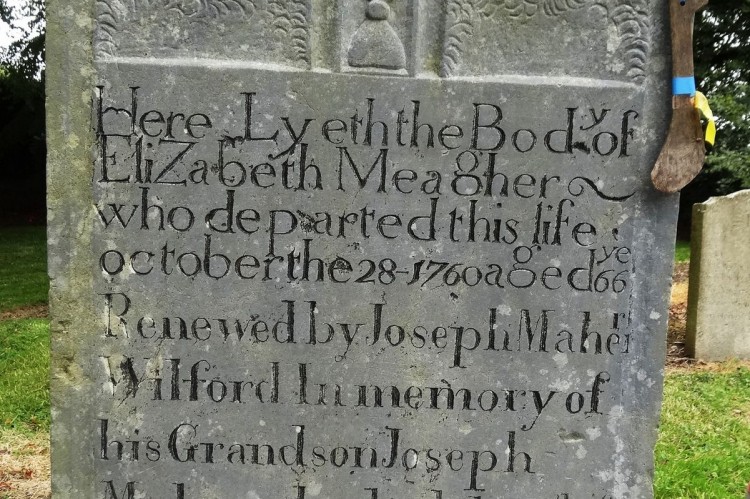 Here Lyeth the Body of
EliZabeth Meagher
who departed this life
october the 28-1760 aged ye 66
Renewed by Joseph Maher
Wilford In memory of
his Grandson Joseph